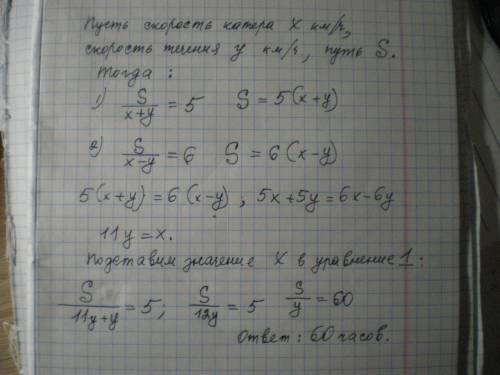 Пусть скорость катера x км/ч,
скорость течения y км/ч, путь S.
Тогда:
1) S/(x+y) = 5 S = 5(x+y)
2) S/(x-y) = 6 S = 6(x-y)
5(x+y) = 6(x-y); 5x+5y = 6x-6y
11y = x.
Подставим значение x в уравнение 1:
S/(11y+y) = 5; S/12y = 5 S/y = 60
Ответ: 60 часов.